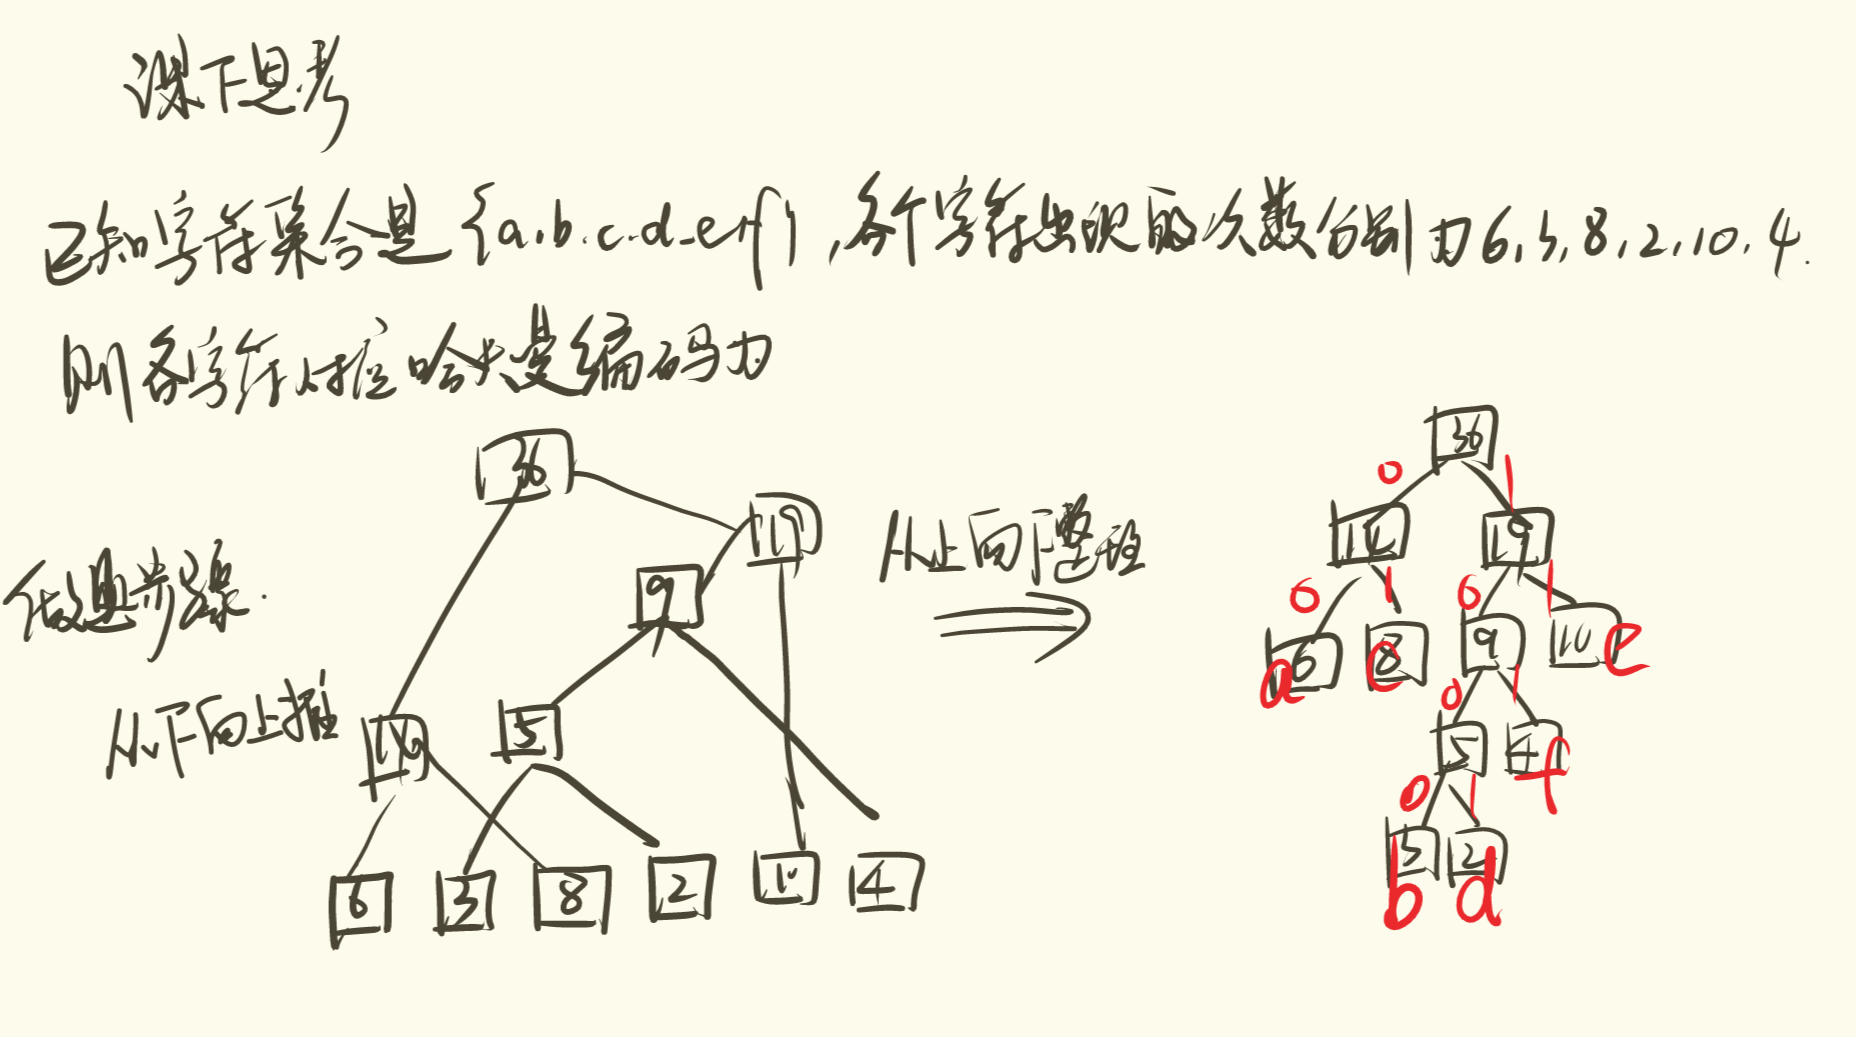 课下思考
已知字符集合是{a.b.c.d.e.f},各个字符出现的次数分别为6,3,8,2,10,4.
则各字符对应哈夫曼编码为
36
19
9
做题步骤.
从下向上推
14
5
6 3 8 2 10 4
从上向下整理
36
0 1
14 19
0 1 0 1
6 8 9 10
a c e
0 1
5 4
f
0 1
3 2
b d